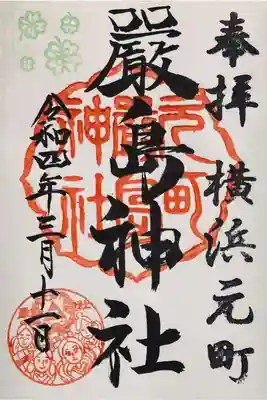 奉拝 横浜元町
嚴島神社
元町
嚴島
神社
令和四年三月十一日